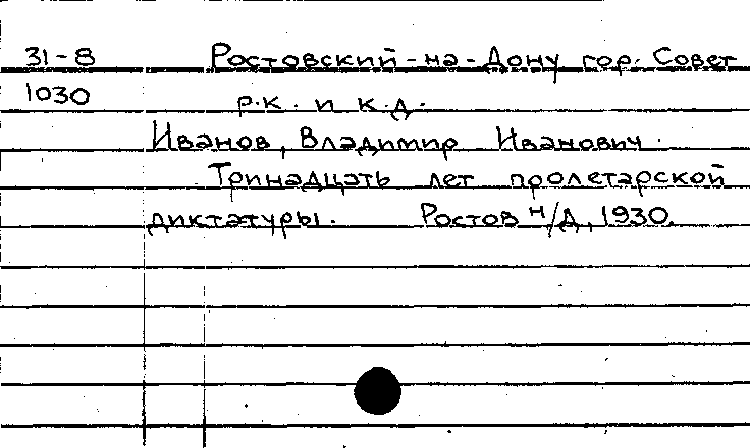 31-8 Ростовский-на-Дону гор. Совет
1030 р.к. и к.д.
Иванов, Владимир Иванович.
Тринадцать лет пролетарской
диктатуры. Ростов н/Д, 1930.